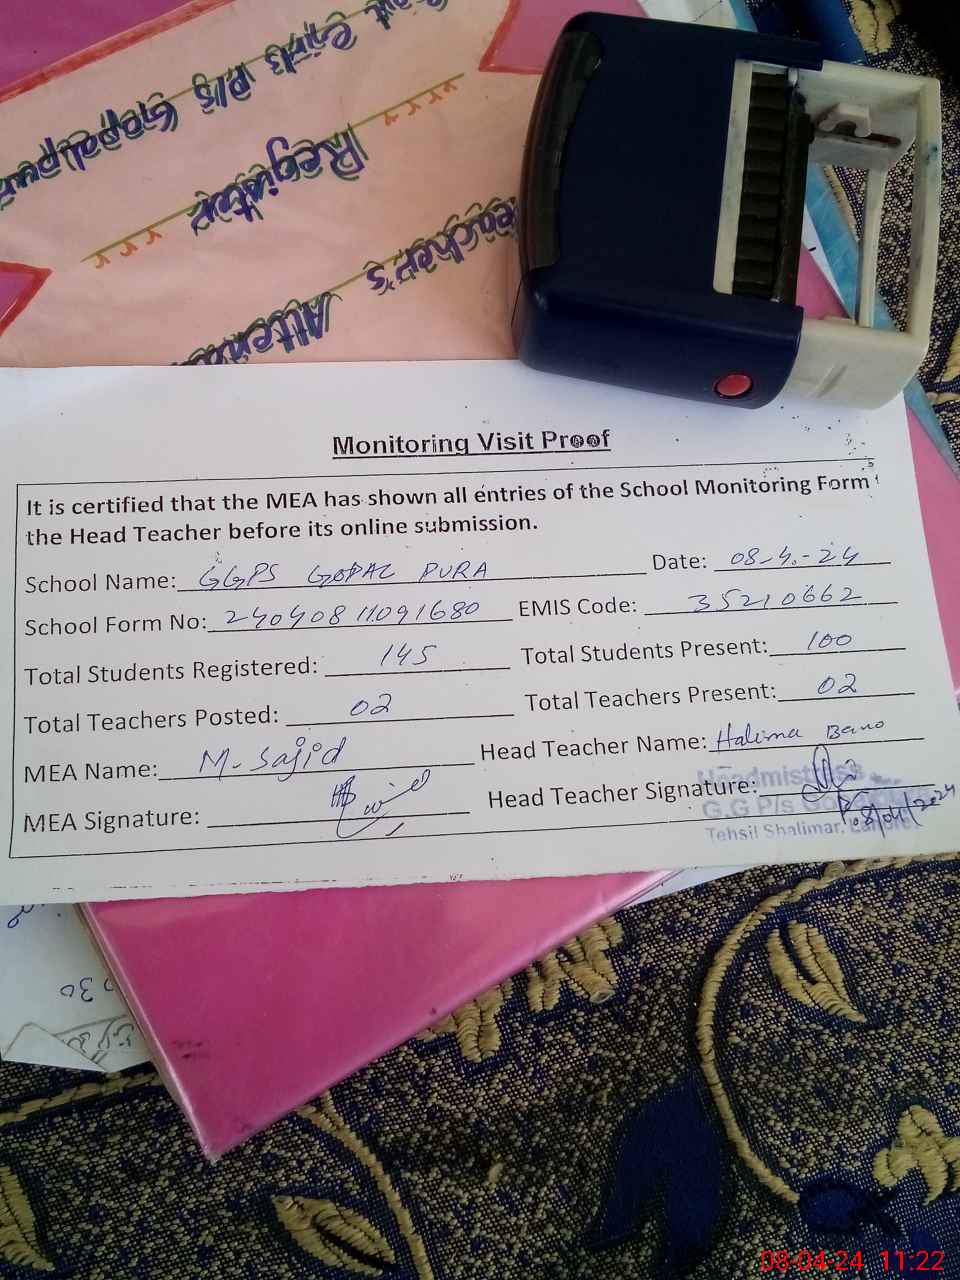 Govt Girls P/S Gopalpura
Register
Teacher's
Attend
Monitoring Visit Proof
It is certified that the MEA has shown all entries of the School Monitoring Form
the Head Teacher before its online submission.
School Name: GGPS GOPAL PURA Date: 08-4.-24
School Form No: 240408 11091680 EMIS Code: 35210662
Total Students Registered: 145 Total Students Present: 100
Total Teachers Posted: 02 Total Teachers Present: 02
MEA Name: M. Sajid Head Teacher Name: Halima Bano
MEA Signature: Head Teacher Signature:
Headmistress
G.G P/s
Tehsil Shalimar, Lahore
08/04/2024
30
08-04-24 11:22